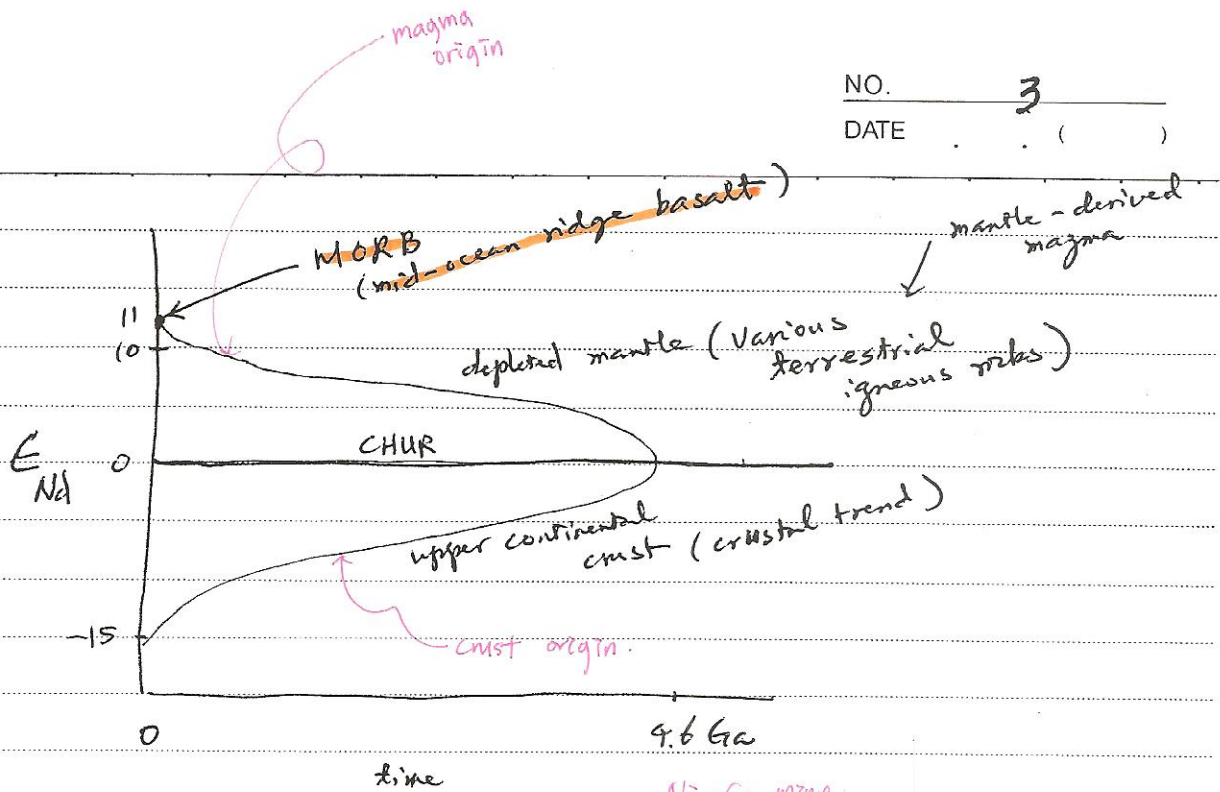 magma
origin
NO. 3
DATE . . ( )
MORB
(mid-ocean ridge basalt)
mantle-derived
magma
11
10
depleted mantle (various
terrestrial
igneous rocks)
CHUR
ε
Nd
0
upper continental
crust (crustal trend)
-15
crust origin.
0
4.6 Ga
time